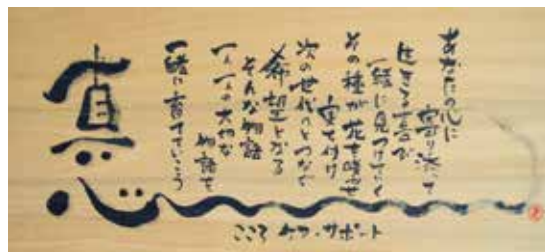 あなたの心に
寄り添って
生きる喜び
一緒に見つけてゆく
その種が花を咲かせ
実を付け
次の世代へとつなぐ
希望となる
そんな物語
一人一人の大切な
物語を
一緒に育てていこう
真心
こころ ケア・サポート